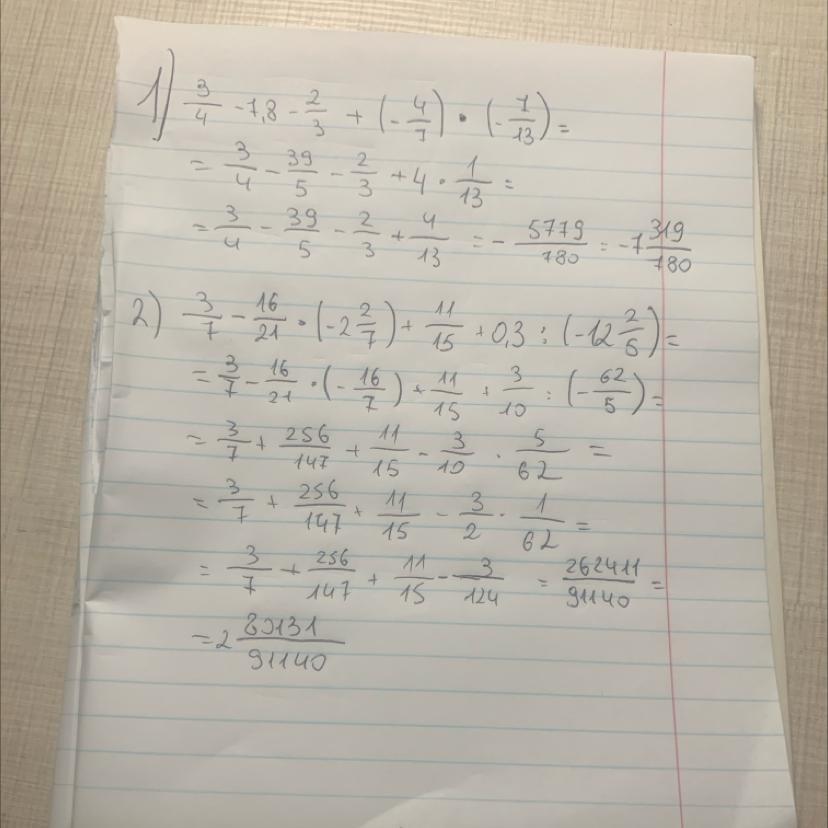 1) 3/4 - 7,8 - 2/3 + (- 4/7) · (- 7/13) =
= 3/4 - 39/5 - 2/3 + 4 · 1/13 =
= 3/4 - 39/5 - 2/3 + 4/13 = - 5779/780 = -7 319/780
2) 3/7 - 16/21 · (-2 2/7) + 11/15 + 0,3 : (-12 2/5) =
= 3/7 - 16/21 · (- 16/7) + 11/15 + 3/10 : (- 62/5) =
= 3/7 + 256/147 + 11/15 - 3/10 · 5/62 =
= 3/7 + 256/147 + 11/15 - 3/2 · 1/62 =
= 3/7 + 256/147 + 11/15 - 3/124 = 262411/91140 =
= 2 80131/91140